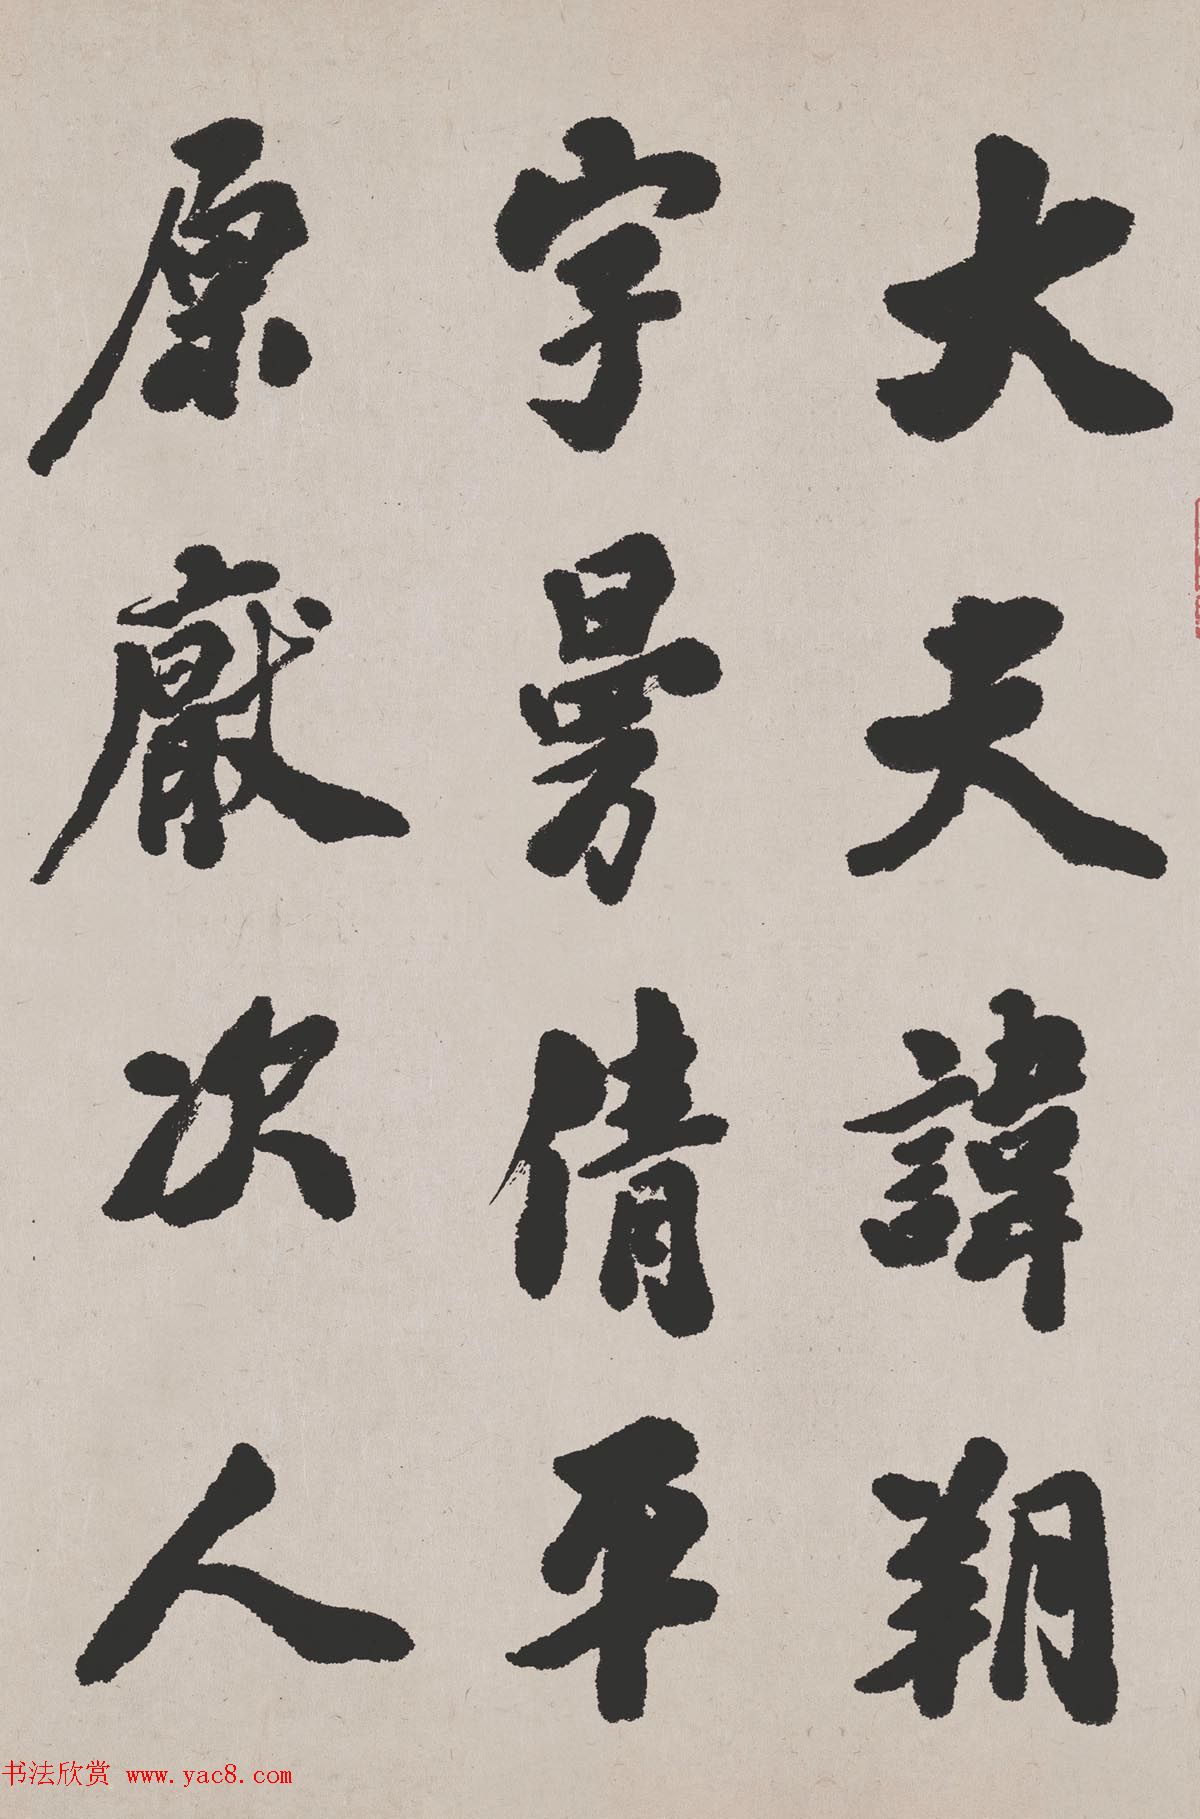 大夫諱朔
字曼倩平
原厭次人
书法欣赏 www.yac8.com